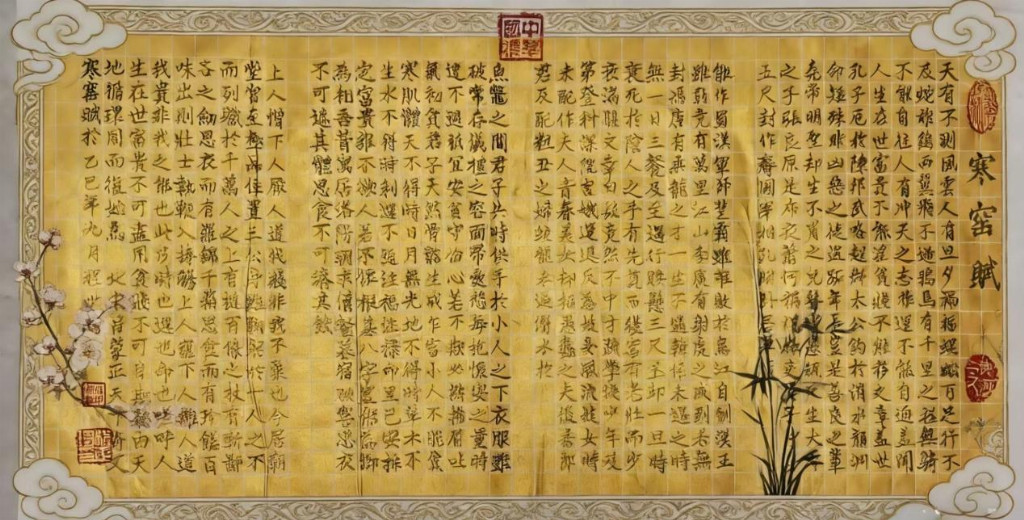 寒窑賦
天有不測風雲人有旦夕禍福蜈蚣百足行不
及蛇雄鷄兩翼飛不過鴉馬有千里之程無騎
不能自往人有冲天之志非運不能自通蓋聞
人生在世富貴不能淫貧賤不能移文章蓋世
孔子厄於陳邦武略超群太公釣於渭水顏淵
命短殊非凶惡之徒盗跖年長豈是善良之輩
堯帝明聖却生不肖之兒瞽叟愚頑反生大孝
之子張良原是布衣蕭何稱謂縣吏晏子
五尺封作齊國宰相孔明卧居草廬
能作蜀漢軍師楚霸雖雄敗於烏江自刎漢王
雖弱竟有萬里江山李廣有射虎之威到老無
封馮唐有乘龍之才一生不遇韓信未遇之時
無一日三餐及至遇行腰懸三尺玉印一旦時
衰死於陰人之手有先貧而後富有老壯而少
衰滿腹文章白髮竟然不中才疏學淺少年及
第登科深院宮娥運退反為妓妾風流妓女時
來配作夫人青春美女却招愚蠢之夫俊秀郎
君反配粗丑之婦蛟龍未遇潛水於
魚鱉之間君子失時拱手於小人之下衣服雖
破常存儀禮之容面帶憂愁每抱懷安之量時
遭不遇衹宜安貧守份心若不欺必然揚眉吐
氣初貧君子天然骨骼生成乍富小人不脱貧
寒肌體天不得時日月無光地不得時草木不
生水不得時利運不通注福注禄命里已安排
定富貴誰不欲人若不依根基八字豈能為卿
為相吾昔寓居洛陽朝求僧餐暮宿破窑思衣
不可遮其體思食不可濟其饑
上人憎下人厭人道我賤非我不棄也今居朝
堂官至極品位置三公身雖鞠躬於一人之下
而列職於千萬人之上有撻百僚之杖有斬鄙
吝之劍思衣而有羅錦千箱思食而有珍饈百
味出則壯士執鞭入捧觴上人寵下人擁人道
我貴非我之能也此時也運也命也嗟呼人
生在世富貴不可盡用貧賤不可自欺聽由天
地循環周而復始焉 北宋吕蒙正天
寒窑賦於乙巳年九月程世